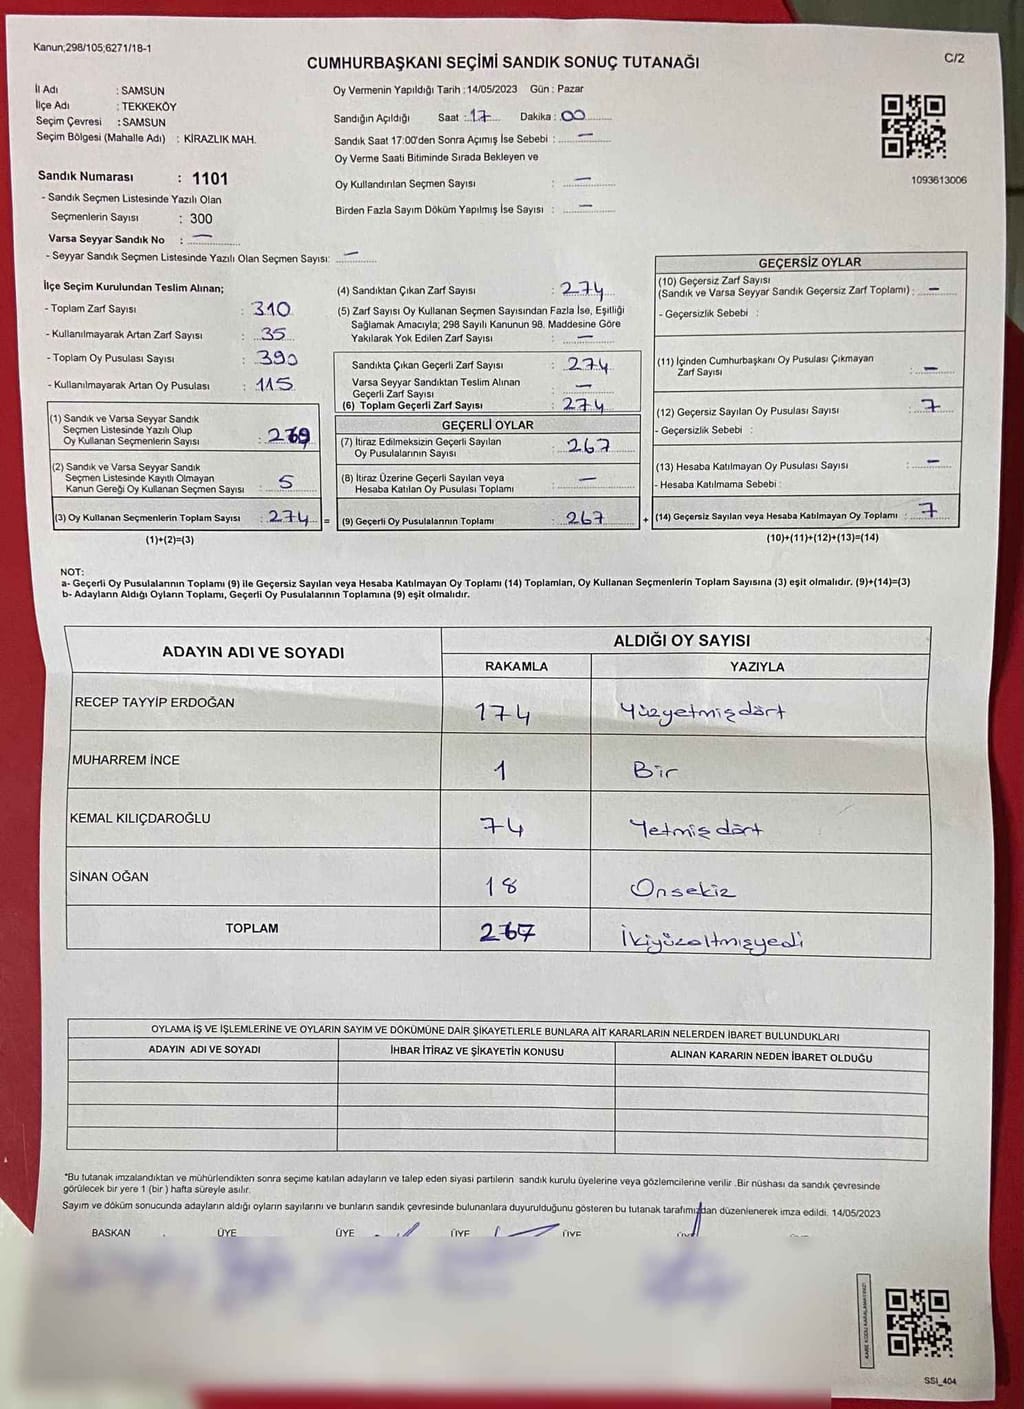 Kanun;298/105;6271/18-1
CUMHURBAŞKANI SEÇİMİ SANDIK SONUÇ TUTANAĞI
C/2
İl Adı : SAMSUN
İlçe Adı : TEKKEKÖY
Seçim Çevresi : SAMSUN
Seçim Bölgesi (Mahalle Adı) : KİRAZLIK MAH.
Oy Vermenin Yapıldığı Tarih : 14/05/2023 Gün : Pazar
Sandığın Açıldığı Saat : 17 Dakika : 00
Sandık Saat 17:00'den Sonra Açımış İse Sebebi : —
Oy Verme Saati Bitiminde Sırada Bekleyen ve
Oy Kullandırılan Seçmen Sayısı : —
Birden Fazla Sayım Döküm Yapılmış İse Sayısı : —
1093613006
Sandık Numarası : 1101
- Sandık Seçmen Listesinde Yazılı Olan
Seçmenlerin Sayısı : 300
Varsa Seyyar Sandık No : —
- Seyyar Sandık Seçmen Listesinde Yazılı Olan Seçmen Sayısı: —
İlçe Seçim Kurulundan Teslim Alınan;
- Toplam Zarf Sayısı : 310
- Kullanılmayarak Artan Zarf Sayısı : 35
- Toplam Oy Pusulası Sayısı : 390
- Kullanılmayarak Artan Oy Pusulası : 115
(1) Sandık ve Varsa Seyyar Sandık
Seçmen Listesinde Yazılı Olup
Oy Kullanan Seçmenlerin Sayısı : 269
(2) Sandık ve Varsa Seyyar Sandık
Seçmen Listesinde Kayıtlı Olmayan
Kanun Gereği Oy Kullanan Seçmen Sayısı : 5
(3) Oy Kullanan Seçmenlerin Toplam Sayısı : 274 =
(1)+(2)=(3)
(4) Sandıktan Çıkan Zarf Sayısı : 274
(5) Zarf Sayısı Oy Kullanan Seçmen Sayısından Fazla İse, Eşitliği
Sağlamak Amacıyla; 298 Sayılı Kanunun 98. Maddesine Göre
Yakılarak Yok Edilen Zarf Sayısı : —
Sandıkta Çıkan Geçerli Zarf Sayısı : 274
Varsa Seyyar Sandıktan Teslim Alınan
Geçerli Zarf Sayısı : —
(6) Toplam Geçerli Zarf Sayısı : 274
GEÇERLİ OYLAR
(7) İtiraz Edilmeksizin Geçerli Sayılan
Oy Pusulalarının Sayısı : 267
(8) İtiraz Üzerine Geçerli Sayılan veya
Hesaba Katılan Oy Pusulası Toplamı : —
(9) Geçerli Oy Pusulalarının Toplamı : 267 +
GEÇERSİZ OYLAR
(10) Geçersiz Zarf Sayısı
(Sandık ve Varsa Seyyar Sandık Geçersiz Zarf Toplamı) : —
- Geçersizlik Sebebi :
(11) İçinden Cumhurbaşkanı Oy Pusulası Çıkmayan
Zarf Sayısı : —
(12) Geçersiz Sayılan Oy Pusulası Sayısı : 7
- Geçersizlik Sebebi :
(13) Hesaba Katılmayan Oy Pusulası Sayısı : —
- Hesaba Katılmama Sebebi :
(14) Geçersiz Sayılan veya Hesaba Katılmayan Oy Toplamı : 7
(10)+(11)+(12)+(13)=(14)
NOT:
a- Geçerli Oy Pusulalarının Toplamı (9) ile Geçersiz Sayılan veya Hesaba Katılmayan Oy Toplamı (14) Toplamları, Oy Kullanan Seçmenlerin Toplam Sayısına (3) eşit olmalıdır. (9)+(14)=(3)
b- Adayların Aldığı Oyların Toplamı, Geçerli Oy Pusulalarının Toplamına (9) eşit olmalıdır.
ADAYIN ADI VE SOYADI ALDIĞI OY SAYISI
RAKAMLA YAZIYLA
RECEP TAYYİP ERDOĞAN 174 Yüzyetmişdört
MUHARREM İNCE 1 Bir
KEMAL KILIÇDAROĞLU 74 Yetmişdört
SİNAN OĞAN 18 Onsekiz
TOPLAM 267 İkiyüzaltmışyedi
OYLAMA İŞ VE İŞLEMLERİNE VE OYLARIN SAYIM VE DÖKÜMÜNE DAİR ŞİKAYETLERLE BUNLARA AİT KARARLARIN NELERDEN İBARET BULUNDUKLARI
ADAYIN ADI VE SOYADI İHBAR İTİRAZ VE ŞİKAYETİN KONUSU ALINAN KARARIN NEDEN İBARET OLDUĞU
*Bu tutanak imzalandıktan ve mühürlendikten sonra seçime katılan adayların ve talep eden siyasi partilerin sandık kurulu üyelerine veya gözlemcilerine verilir .Bir nüshası da sandık çevresinde
görülecek bir yere 1 (bir ) hafta süreyle asılır.
Sayım ve döküm sonucunda adayların aldığı oyların sayılarını ve bunların sandık çevresinde bulunanlara duyurulduğunu gösteren bu tutanak tarafımızdan düzenlenerek imza edildi. 14/05/2023
BAŞKAN ÜYE ÜYE ÜYE ÜYE
SSI_404